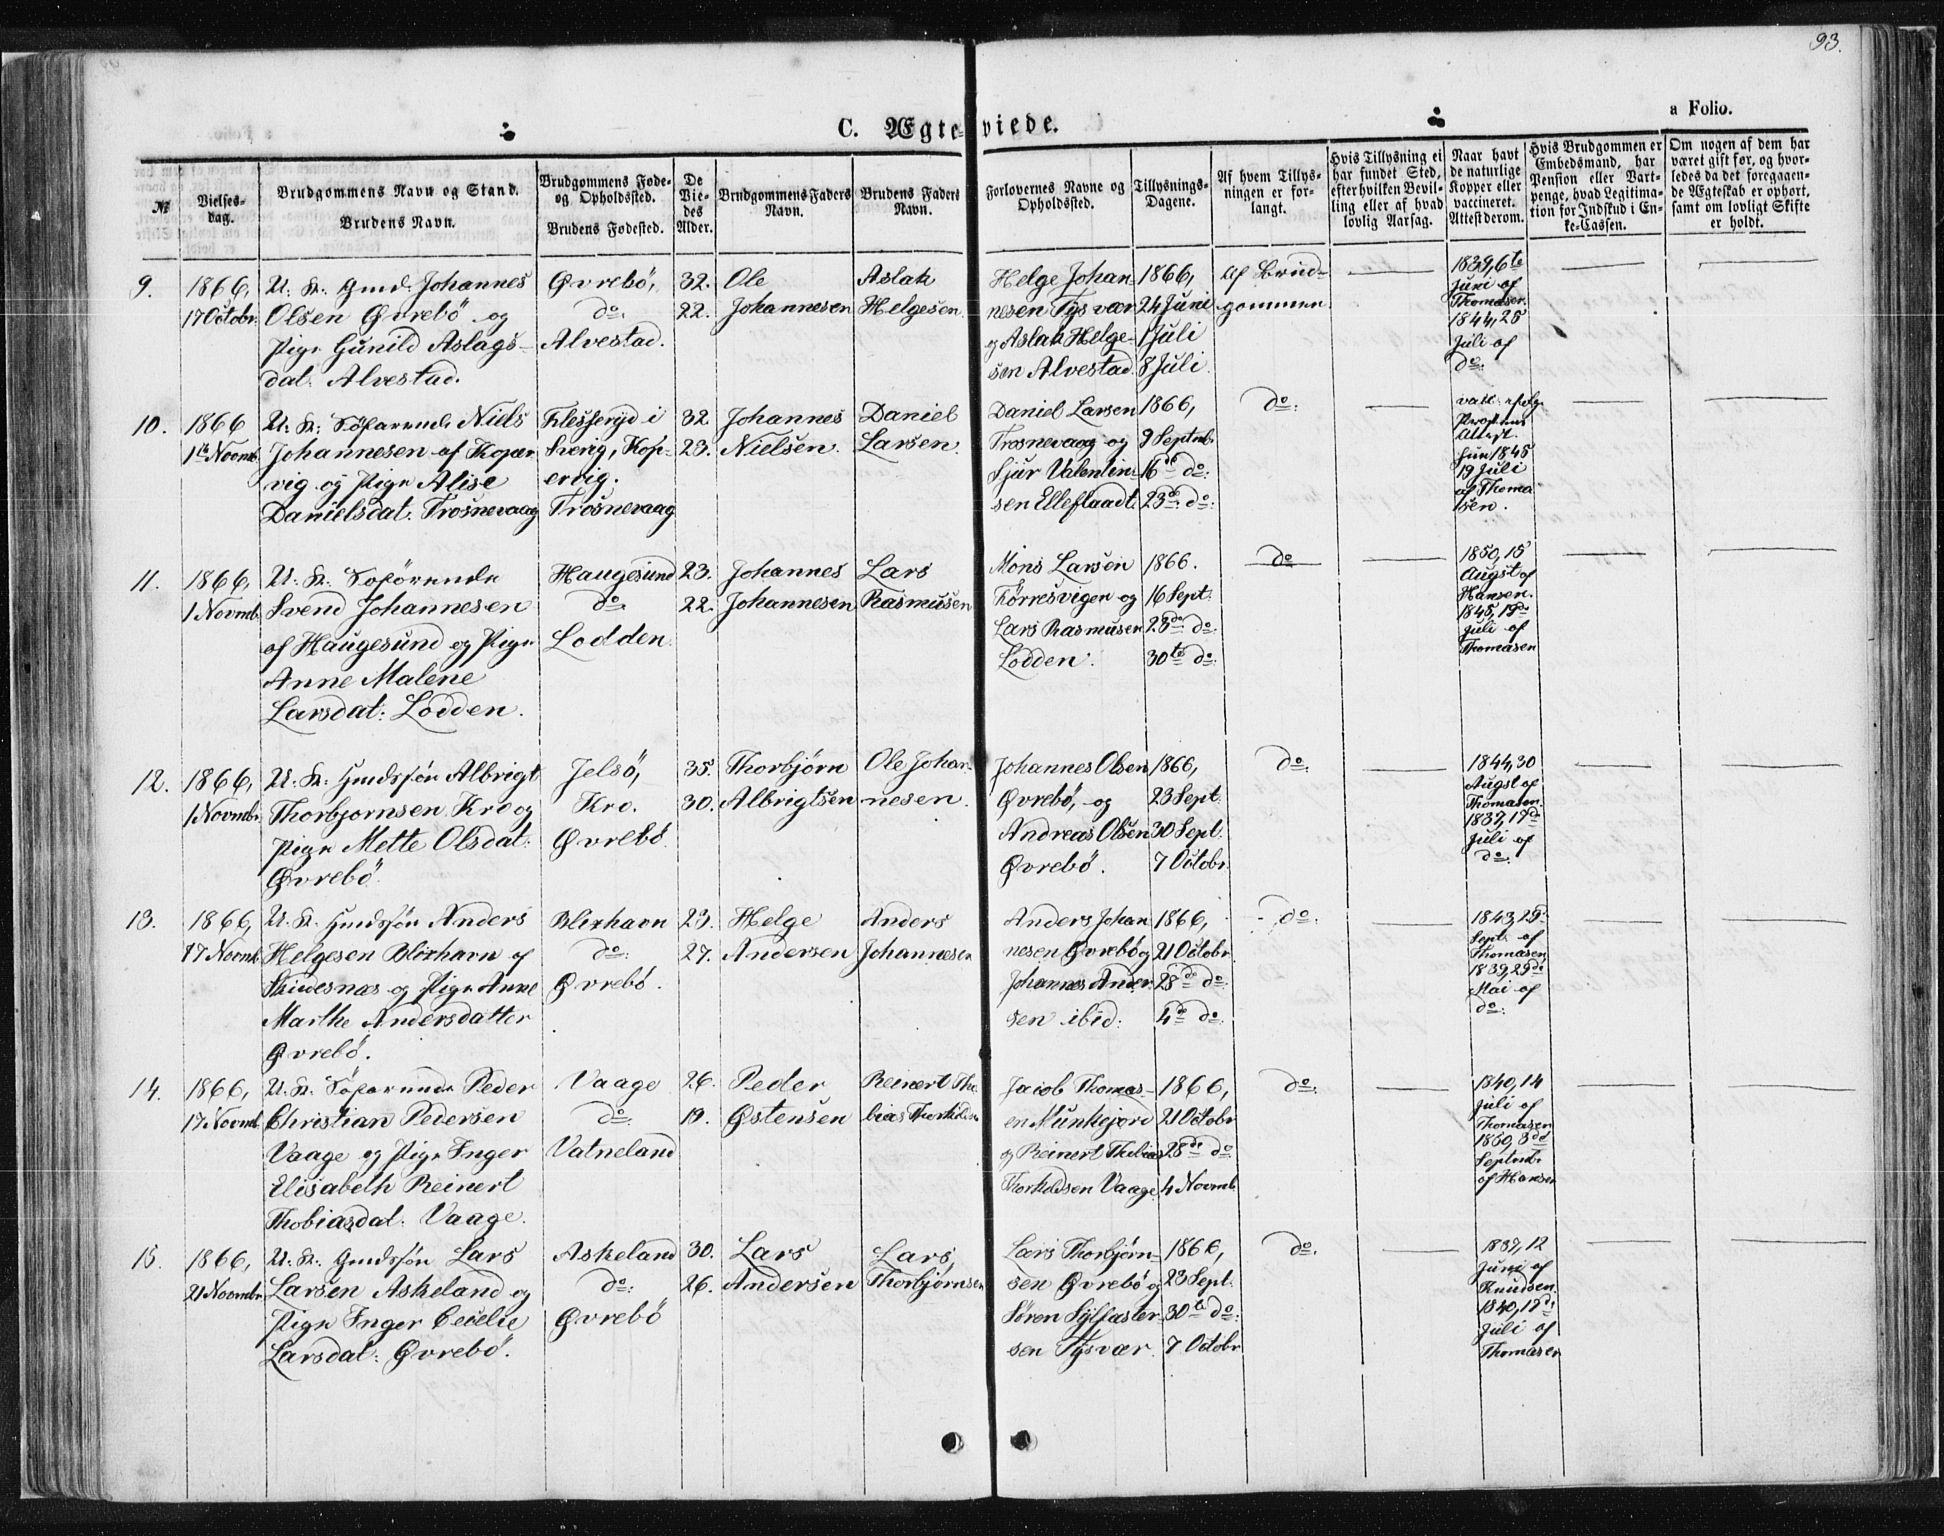 93.
C. Ægteviede.
a Folio.
No
Vielsesdag.
Brudgommens Navn og Stand.
Brudens Navn.
Brudgommens Føde- og Opholdssted.
Brudens Fødested.
De Viedes Alder.
Brudgommens Faders Navn.
Brudens Faders Navn.
Forlovernes Navne og Opholdssted.
Tillysnings-Dagene.
Af hvem Tillysningen er forlangt.
Hvis Tillysning ei har fundet Sted, efter hvilken Bevilling eller af hvad lovlig Aarsag.
Naar havt de naturlige Kopper eller vaccineret. Attest derom.
Hvis Brudgommen er Embedsmand, har Pension eller Vartpenge, hvad Legitimation for Indskud i Enke-Cassen.
Om nogen af dem har været gift før, og hvorledes da det foregaaende Ægteskab er ophørt, samt om lovligt Skifte er holdt.
9.
1866,
17 Octobr.
U. K. Gmd. Johannes
Olsen Øvrebö og
Pige Gunild Aslags-
dat. Alvestad.
Øvrebö,
do.
Alvestad.
32.
22.
Ole
Johannesen
Aslak
Helgesen
Helge Johan
nesen Tysvær
og Aslak Helge-
sen Alvestad.
1866,
24 Juni
1 Juli
8 Juli.
Af Brud-
gommen.
1839, 6te
Juni af
Thomasen.
1844, 25
Juli af
do.
10.
1866
1ste Novmb.
U. K. Söfarende Niels
Johannesen af Koper
vig og Pige Alise
Danielsdat. Trosnevaag
Flesseryd i
Sverig, Kop-
ervig.
Trosnevaag
32
23.
Johannes
Nielsen.
Daniel
Larsen.
Daniel Larsen
Trosnevaag og
Sjur Valentin-
sen Elleflaadt.
1866,
9 Septmb.
16de do.
23de do.
do.
Prostens
Attest.
hun 1845
19 Juli
af Thoma
sen.
11.
1866,
1 Novmb.
U. K. Söfarende
Svend Johannesen
af Haugesund og Pige
Anne Malene
Larsdat. Lodden.
Haugesund
do.
Lodden
23.
22.
Johannes
Johannesen
Lars
Rasmusen
Mons Larsen
Förresvigen og
Lars Rasmusen
Lodden.
1866.
16 Sept.
23de do.
30te do.
do
1850, 15
Augst af
Hansen.
1845, 19de
Juli af
Thomasen
12.
1866,
1 Novmbr.
U. K. Gmdssön Albrigt
Thorbjornsen Kro og
Pige Mette Olsdat.
Øvrebö.
Jelsö,
Kro.
Øvrebö
35.
30.
Thorbjørn
Albrigtsen
Ole Johan-
nesen.
Johannes Olsen
Øvrebö, og
Andreas Olsen
Øvrebö.
1866,
23 Sept.
30 Sept.
7 Octobr.
do.
1844, 30
Augst af
Thomasen.
1837, 19de
Juli af
do.
13.
1866,
17 Novmb.
U. K. Gmdssön Anders
Helgesen Blixhavn af
Skudesnæs og Pige Anne
Marthe Andersdatter
Øvrebö.
Blixhavn
do.
Øvrebö.
23.
27.
Helge
Andersen
Anders
Johannesen
Anders Johan
nesen Øvrebö og
Johannes Ander
sen ibid.
1866,
21 Octobr
28de do.
4de do.
do.
1843, 29de
Sept. af
Thomasen
1839, 29de
Mai af
do.
14.
1866,
17 Novmb.
U. K. Söfarende Peder
Christian Pedersen
Vaage og Pige Inger
Elisabeth Reinert
Thobiasdat. Vaage.
Vaage
do.
Vatneland
26.
19.
Peder
Østensen
Reinert Tho
bias Thorkildsen
Jacob Thomas-
en Munkejord
og Reinert Thobias
Thorkildsen Vaage
1866,
21 Octobr
28de do.
4 Novmb.
do.
1840, 14
Juli af
Thomasen
1850, 3de
Septmb.
af Hansen
15.
1866,
21 Novmbr.
U. K. Gmdssön Lars
Larsen Askeland og
Pige Inger Cecelie
Larsdat. Øvrebö.
Askeland
do.
Øvrebö
30.
26.
Lars
Andersen
Lars
Thorbjørnsen
Lars Thorbjørn-
sen Øvrebö og
Søren Sylfaster-
sen Tysvær.
1866,
23 Sept.
30te do.
7 Octobr
do.
1837, 12
Juni af
Knudsen.
1840, 19de
Juli af
Thomasen